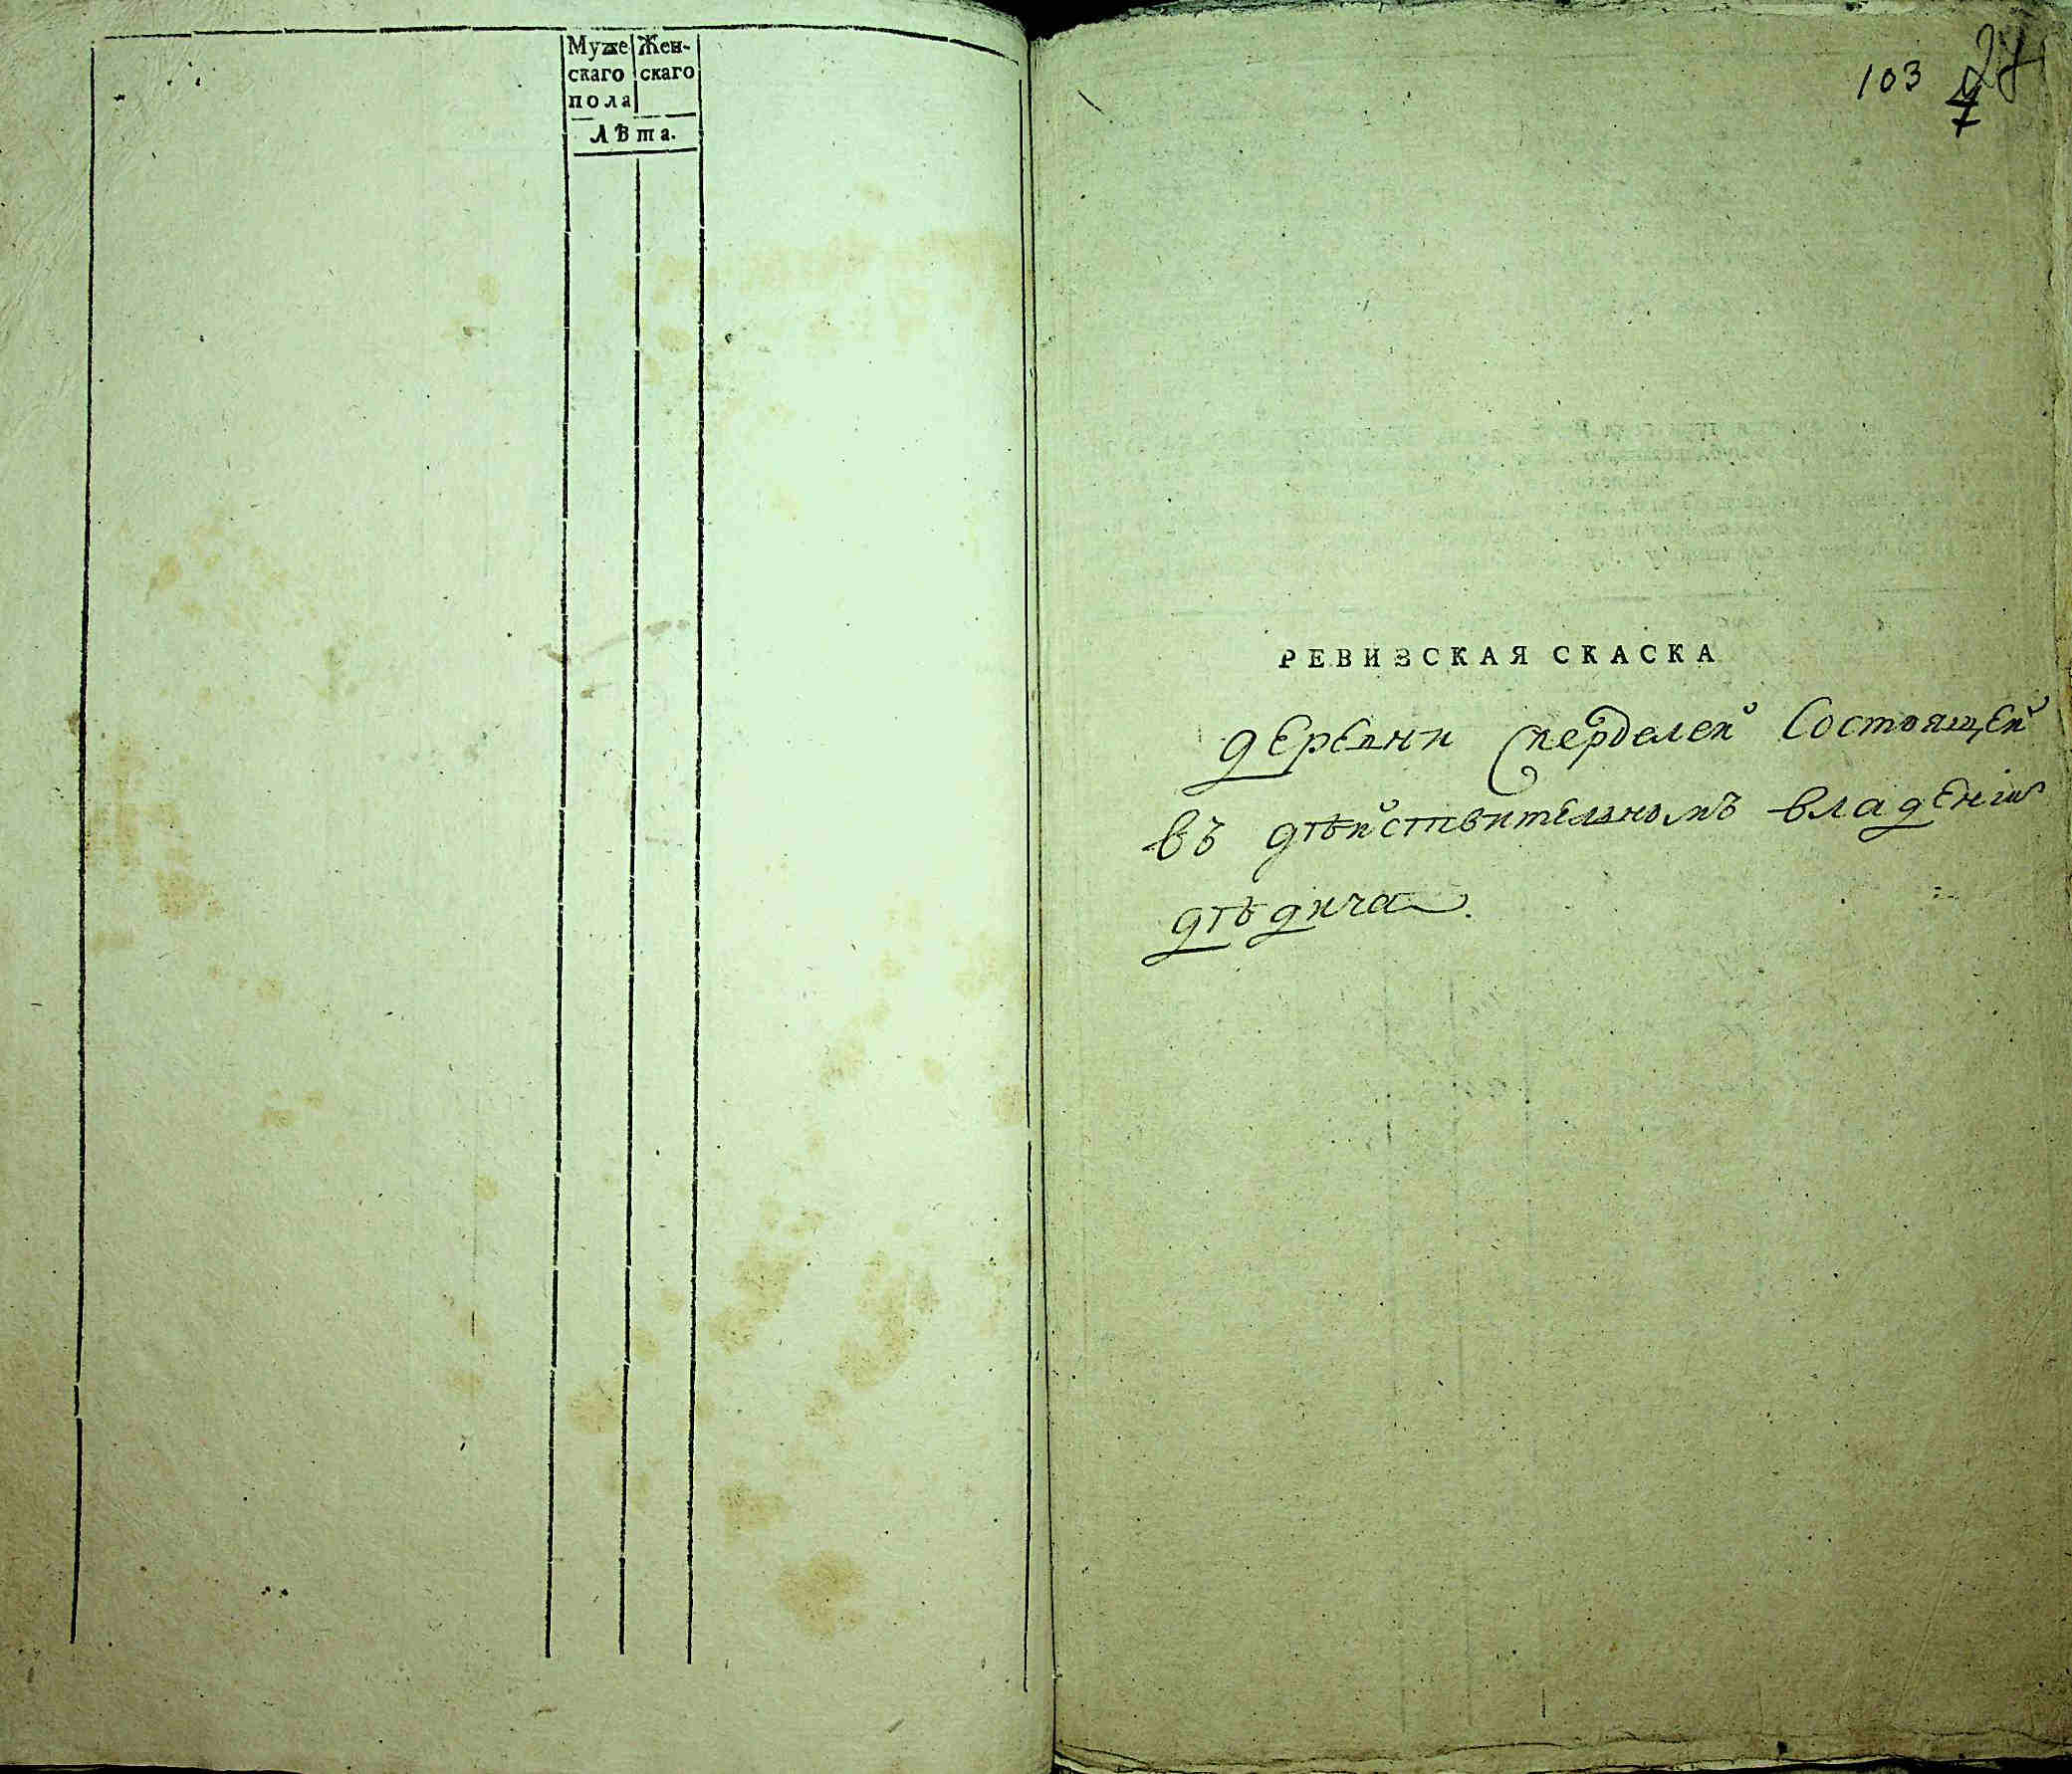 Муже Жен-
скаго скаго
пола
Лѣта.
103 27
7
РЕВИЗСКАЯ СКАСКА
деревни Скерделей Состоящей
въ дѣйствительномъ владенiи
дѣдича